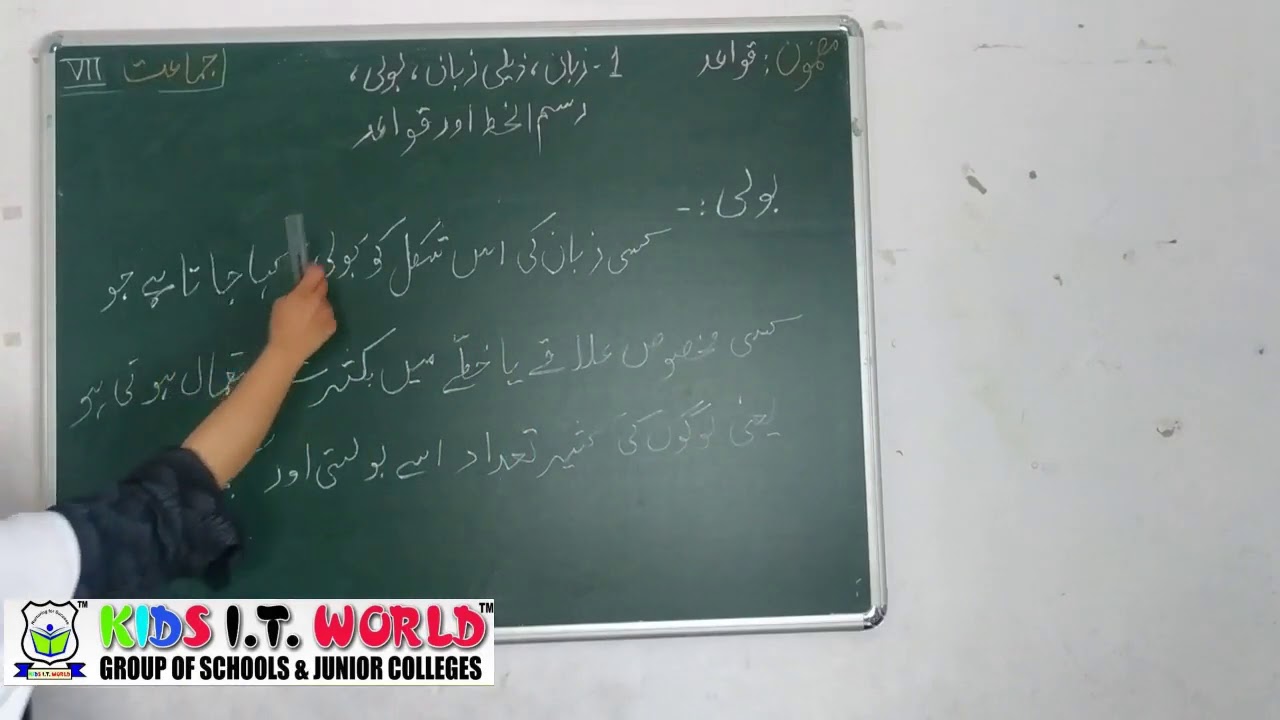 مضمون : قواعد
1- زبان، ذیلی زبان، بولی،
رسم الخط اور قواعد
جماعت VII
بولی :-
کسی زبان کی اس شکل کو بولی کہا جاتا ہے جو
کسی مخصوص علاقے یا خطّے میں بکثرت ہوتی ہو
یعنی لوگوں کی کثیر تعداد اسے بولتی اور
KIDS I.T. WORLD TM
GROUP OF SCHOOLS & JUNIOR COLLEGES
TM
KIDS I.T. WORLD